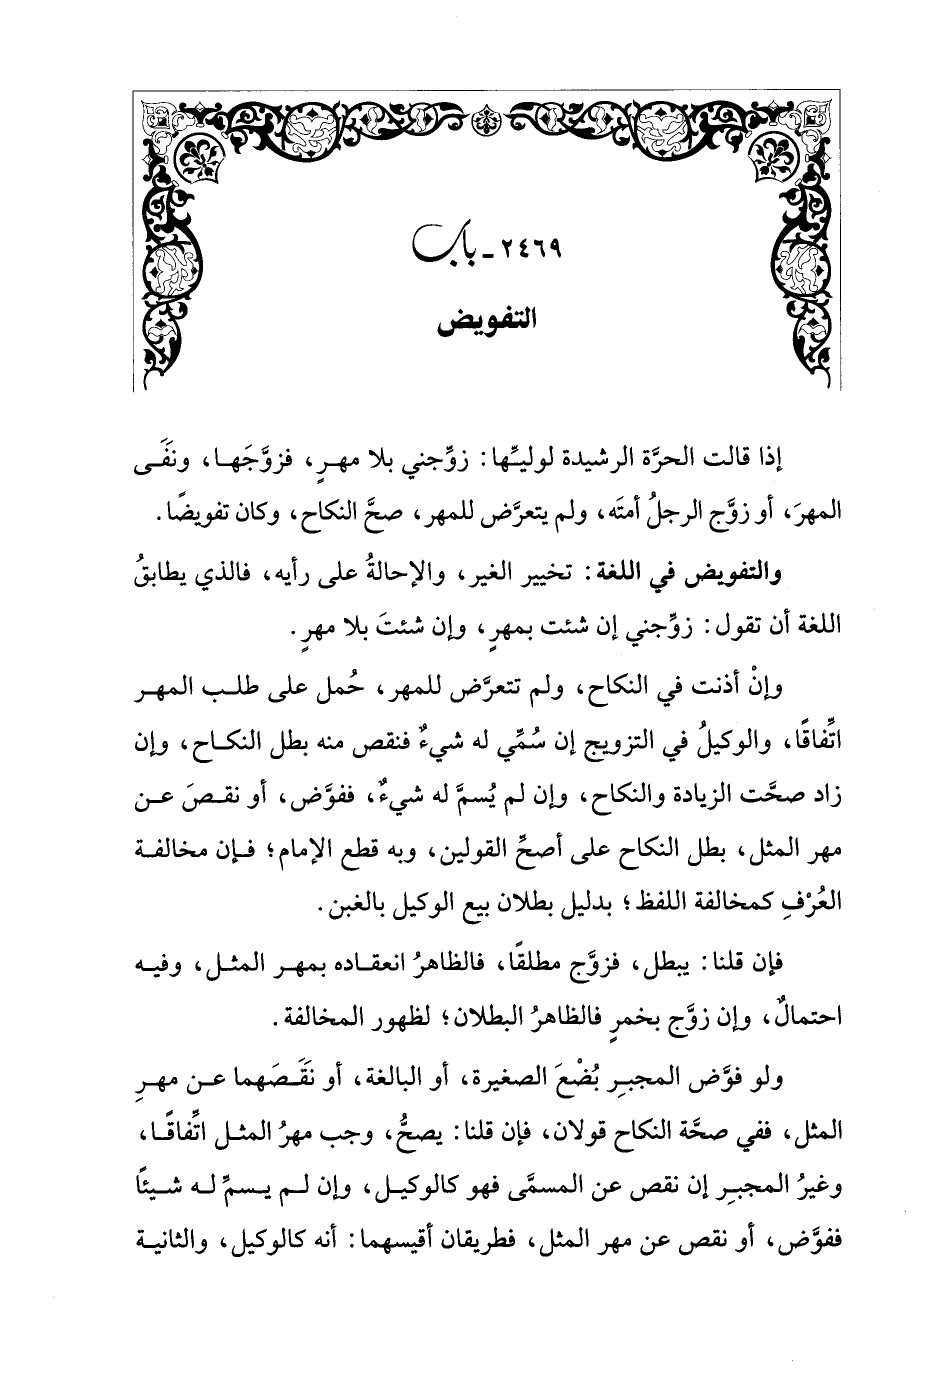 ٢٤٦٩ - باب
التفويض
إذا قالت الحرَّة الرشيدة لوليِّها: زوِّجني بلا مهرٍ، فزوَّجَها، ونفَى
المهرَ، أو زوَّج الرجلُ أمتَه، ولم يتعرَّض للمهر، صحَّ النكاح، وكان تفويضًا.
والتفويض في اللغة: تخيير الغير، والإحالةُ على رأيه، فالذي يطابقُ
اللغة أن تقول: زوِّجني إن شئت بمهرٍ، وإن شئتَ بلا مهرٍ.
وإنْ أذنت في النكاح، ولم تتعرَّض للمهر، حُمل على طلب المهر
اتِّفاقًا، والوكيلُ في التزويج إن سُمِّي له شيءٌ فنقص منه بطل النكاح، وإن
زاد صحَّت الزيادة والنكاح، وإن لم يُسمَّ له شيءٌ، ففوَّض، أو نقصَ عن
مهر المثل، بطل النكاح على أصحِّ القولين، وبه قطع الإمام؛ فإن مخالفة
العُرْفِ كمخالفة اللفظ؛ بدليل بطلان بيع الوكيل بالغبن.
فإن قلنا: يبطل، فزوَّج مطلقًا، فالظاهرُ انعقاده بمهر المثل، وفيه
احتمالٌ، وإن زوَّج بخمرٍ فالظاهرُ البطلان؛ لظهور المخالفة.
ولو فوَّض المجبِر بُضْعَ الصغيرة، أو البالغة، أو نقَصَهما عن مهرِ
المثل، ففي صحَّة النكاح قولان، فإن قلنا: يصحُّ، وجب مهرُ المثل اتِّفاقًا،
وغيرُ المجبِر إن نقص عن المسمَّى فهو كالوكيل، وإن لم يسمِّ له شيئًا
ففوَّض، أو نقص عن مهر المثل، فطريقان أقيسهما: أنه كالوكيل، والثانية